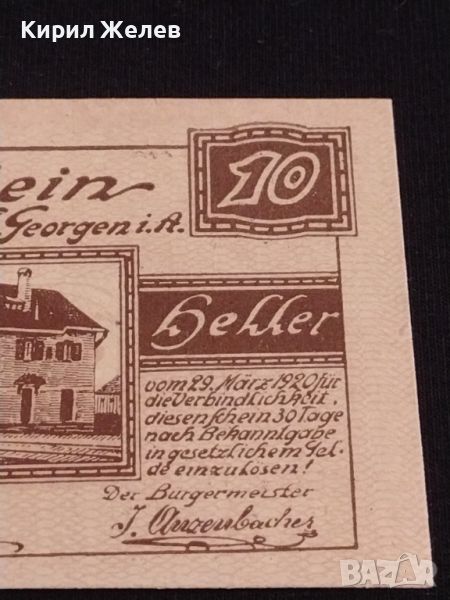 Кирил Желев
ein
10
Georgen i. A.
Heller
vom 29. März 1920 für
die Verbindlichkeit,
diesen Schein 30 Tage
nach Bekanntgabe
in gesetzlichem Gel-
de einzulösen!
Der Burgermeister
J. Anzenbacher
BAZAR